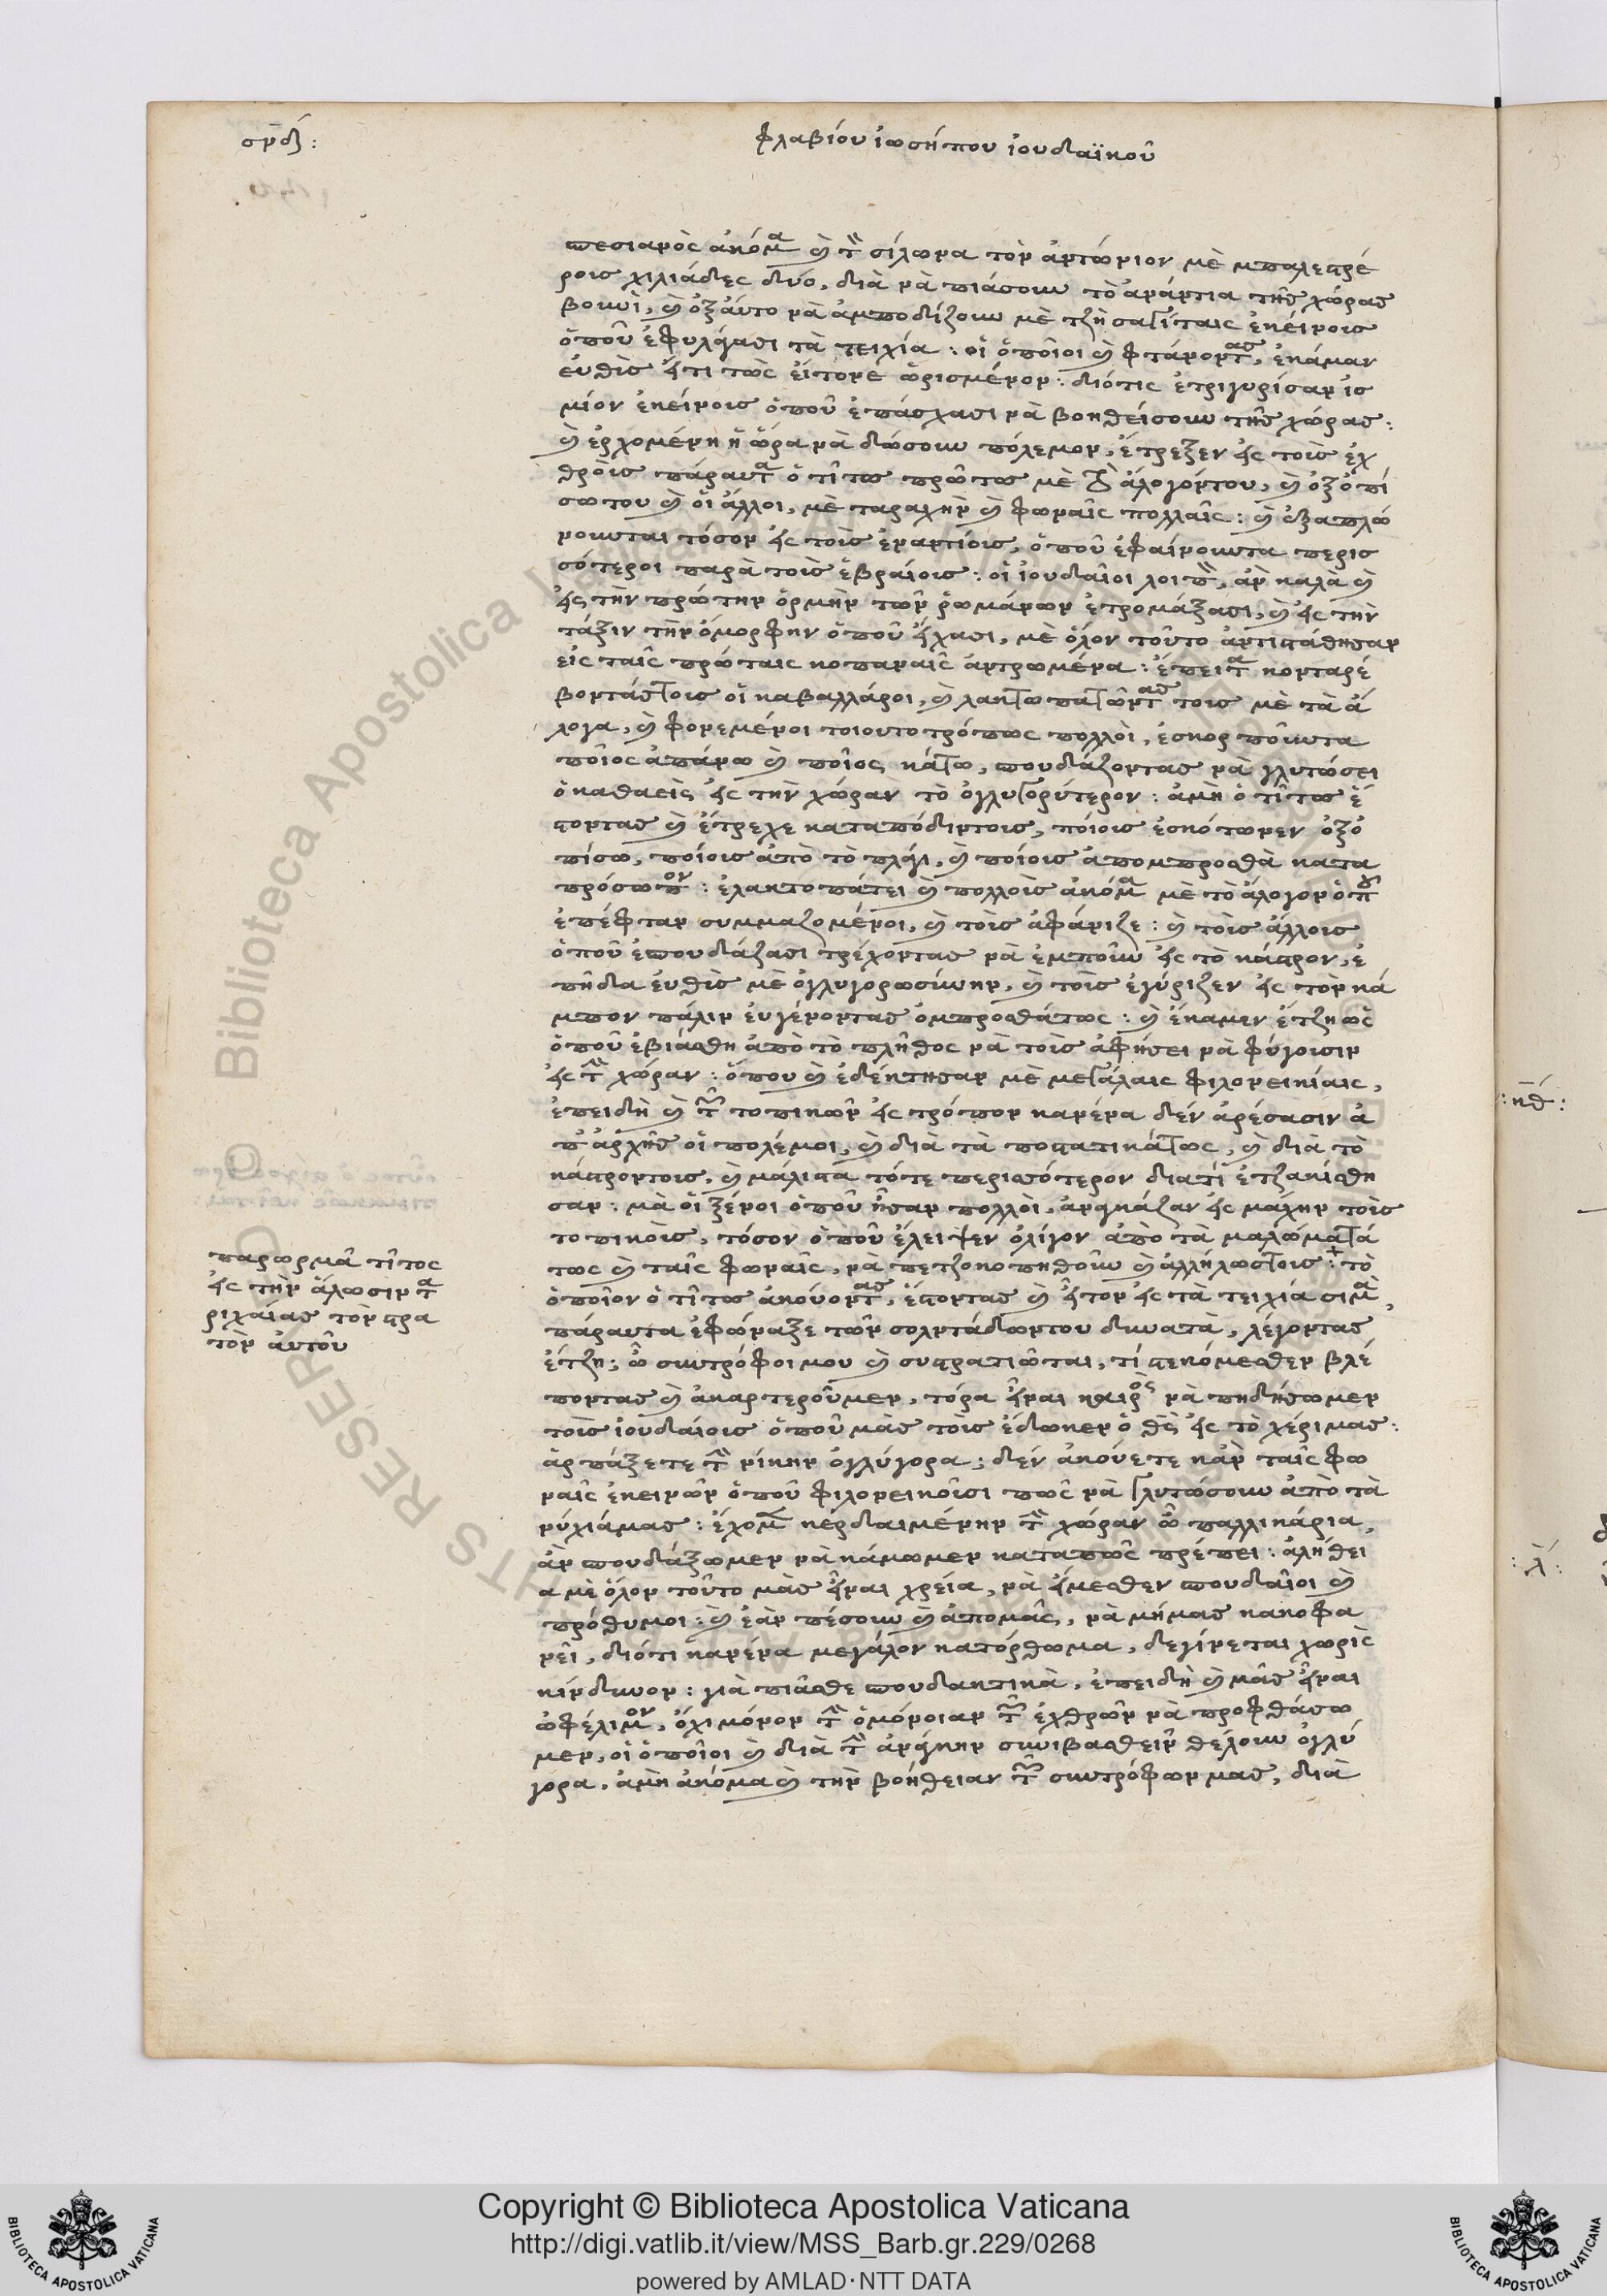 σϟδ:
φλαβίου ἰωσήπου ἰουδαϊκοῦ
πεσιανὸς ἀκόμα καὶ τὸν σίλωνα τὸν ἀντώνιον μὲ μπαλεστρέ
ροις χιλιάδες δύο, διὰ νὰ πιάσουν τὸ ἀνάντια τῆς χώρας
βουνὶ, καὶ ὀξαύτο νὰ ἀμποδίζουν μὲ τζὴ σαγίταις ἐκείνοις
ὁποῦ ἐφυλάγασι τὰ τειχία: οἱ ὁποῖοι καὶ φτάνοντας, ἐκάμαν
εὐθὶς ὅτι τὼς εἴτονε ὡρισμένον: διότις ἐτριγυρίσαν ἰσ
μίον ἐκείνοις ὁποῦ ἐπάσχασι νὰ βοηθείσουν τῆς χώρας:
καὶ ἐρχομένη ἡ ὥρα νὰ δώσουν πόλεμον, ἔτρεξεν εἰς τοὶς ἐχ
θροὶς πάραυτα ὁ τῖτος πρῶτος μὲ τὸ ἄλογόντου, καὶ ὀξοπί
σωτου καὶ οἱ ἄλλοι, μὲ ταραχὴν καὶ φωναῖς πολλαῖς: καὶ ἐξαπλώ
νουνται τόσον εἰς τοὶς ἐναντίοις, ὁποῦ ἐφαίνουντα περισ
σότεροι παρὰ τοὶς ἑβραίοις: οἱ ἰουδαῖοι λοιπὸν, ἂν καλὰ καὶ
εἰς τὴν πρώτην ὁρμὴν τῶν ῥωμάνων ἐτρομάξασι, καὶ εἰς τὴν
τάξιν τὴν ὄμορφην ὁποῦ εἴχασι, μὲ ὅλον τοῦτο ἀντιστάθησαν
εἰς ταῖς πρώταις κοπαναῖς ἀντρωμένα: ἔπειτα κονταρέ
βοντάςτοις οἱ καβαλλάροι, καὶ λακτοπατῶντας τοις μὲ τὰ ἄ
λογα, καὶ φονεμένοι τοιουτοτρόπως πολλοὶ, ἐσκορποῦντα
ποῖος ἀπάνω καὶ ποῖος κάτω, σπουδάζοντας νὰ γλυτώσει
ὁ καθαεὶς εἰς τὴν χώραν τὸ ὀγλυγορύτερον: ἀμὴ ὁ τῖτος ἔ
στοντας καὶ ἔτρεχε καταπόδιντοις, ποίοις ἐσκότωνεν ὀξο
πίσω, ποίοις ἀπὸ τὸ πλάγι, καὶ ποίοις ἀπομπροσθὰ κατα
πρόσωπον: ἐλακτοπάτει καὶ πολλοὶς ἀκόμα μὲ τὸ ἄλογον ὁποῦ
ἐπέφταν συμμαζομένοι, καὶ τοὶς ἀφάνιζε: καὶ τοὶς ἄλλοις
ὁποῦ ἐσπουδάζασι τρέχοντας νὰ ἐμποῦν εἰς τὸ κάστρον, ἐ
πήδα εὐθὶς μὲ ὀγλυγοροσύνην, καὶ τοῖς ἐγύριζεν εἰς τὸν κά
μπον πάλιν εὐγένοντας ὀμπροσθάτως: καὶ ἔκαμεν ἔτζη ὣς
ὁποῦ ἐβιάσθη ἀπὸ τὸ πλῆθος νὰ τοὶς ἀφήσει νὰ φύγοισιν
εἰς τὴν χώραν: ὅπου καὶ ἐδέκτησαν μὲ μεγάλαις φιλονεικίαις,
ἐπειδὴ καὶ τῶν τοπικῶν εἰς τρόπον κανένα δὲν ἀρέσασιν ἀ
π' ἀρχῆς οἱ πολέμοι, καὶ διὰ τὰ ποστατικάτως, καὶ διὰ τὸ
κάστρόντοις, καὶ μάλιστα τότε περισσότερον διατὶ ἐτζακίσθη
σαν: μὰ οἱ ξένοι ὁποῦ ἦσαν πολλοὶ, ἀναγκάζαν εἰς μάχην τοὶς
τοπικοὶς, τόσον ὁποῦ ἔλειψεν ὀλίγον ἀπὸ τὰ μαλώματά
τως καὶ ταῖς φωναῖς, νὰ πετζοκοπηθοῦν καὶ ἀλλήλωςτοις: τὸ
ὁποῖον ὁ τῖτος ἀκούοντας, ἔστοντας καὶ ἦτον εἰς τὰ τειχία σιμὰ,
πάραυτα ἐφώναξε τῶν σολντάδωντου δυνατὰ, λέγοντας
ἔτζη; ὦ συντρόφοι μου καὶ συστρατιῶται, τί στεκόμεσθεν βλέ
ποντας καὶ ἀκαρτεροῦμεν, τόρα εἶναι καιρὸς νὰ πηδήσωμεν
τοῖς ἰουδαίοις ὁποῦ μὰς τοὶς ἔδωκεν ὁ θεὸς εἰς τὸ χέριμας:
ἁρπάξετε τὴν νίκην ὀγλύγορα; δὲν ἀκούετε κἂν ταῖς φω
ναῖς ἐκεινῶν ὁποῦ φιλονεικοῦσι πῶς νὰ γλυτώσουν ἀπὸ τὰ
νύχιάμας: ἔχομεν κερδαιμένην τὴν χώραν ὦ παλλικάρια,
ἂν σπουδάξωμεν νὰ κάμωμεν καταπῶς πρέπει: ἀλήθει
α μὲ ὅλον τοῦτο μὰς εἶναι χρεία, νὰ εἴμεσθεν σπουδαῖοι καὶ
πρόθυμοι: καὶ ἐὰν πέσουν καὶ ἀπομᾶς, νὰ μήμας κακοφα
νεῖ, διότι κανένα μεγάλον κατόρθωμα, δεγίνεται χωρὶς
κίνδυνον: γιὰ πιᾶσθε σπουδακτικὰ, ἐπειδὴ καὶ μᾶς εἶναι
ὠφέλιμον, ὄχι μόνον τὴν ὁμόνοιαν τῶν ἐχθρῶν νὰ προφθάσω
μεν, οἱ ὁποῖοι καὶ διὰ τὴν ἀνάγκην συνιβασθεῖν θέλουν ὀγλύ
γορα, ἀμὴ ἀκόμα καὶ τὴν βοήθειαν τῶν συντρόφων μας, διὰ
παρορμᾶ τῖτος
εἰς τὴν ἅλωσιν τα
ριχαίας τὸν στρα
τὸν αὐτοῦ
:κθ:
:λ:
Copyright © Biblioteca Apostolica Vaticana
http://digi.vatlib.it/view/MSS_Barb.gr.229/0268
powered by AMLAD·NTT DATA
BIBLIOTECA APOSTOLICA VATICANA
BIBLIOTECA APOSTOLICA VATICANA